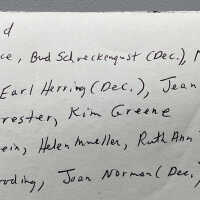 d
ce, Bud Schreckengust (Dec.),
Earl Herring (Dec.), Jean
rester, Kim Greene
ein, Helen Mueller, Ruth Ann
roding, Joan Norman (Dec.